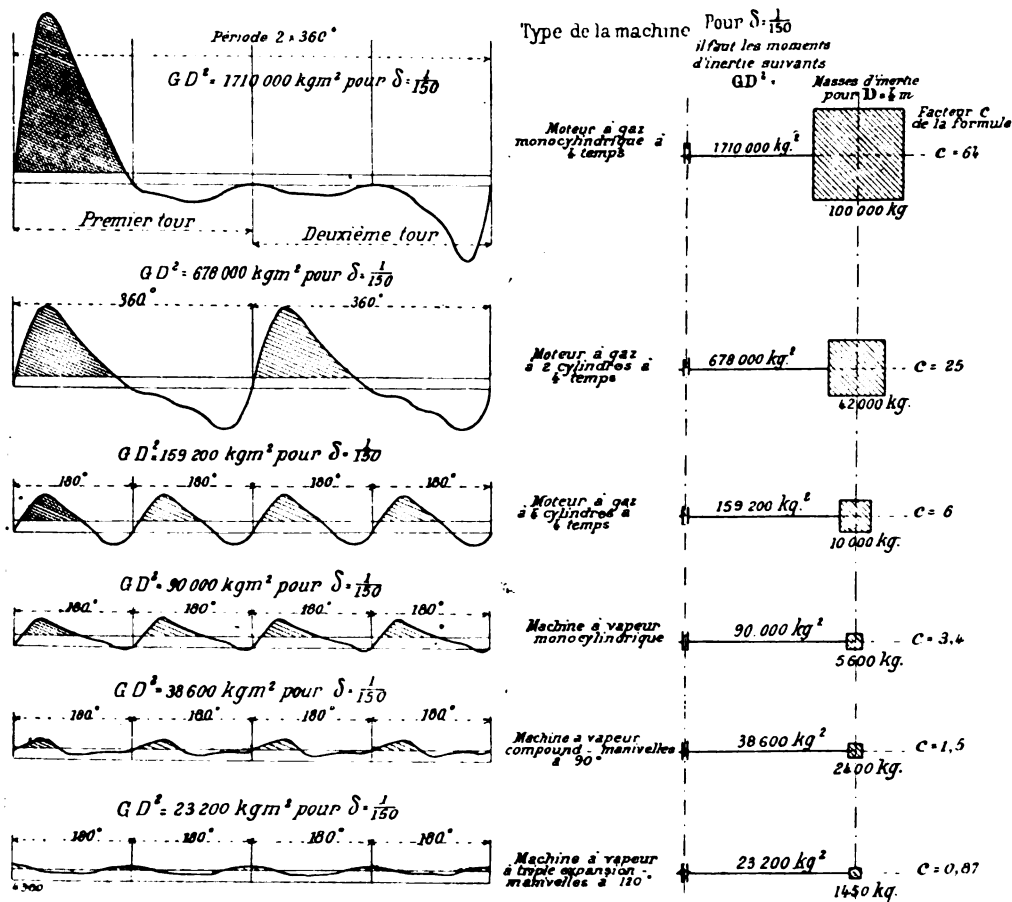 Période 2 × 360°
GD² = 1710 000 kgm² pour δ = 1/150
Premier tour
Deuxième tour
GD² = 678 000 kgm² pour δ = 1/150
360° 360°
GD² = 159 200 kgm² pour δ = 1/150
180° 180° 180° 180°
GD² = 90 000 kgm² pour δ = 1/150
180° 180° 180° 180°
GD² = 38 600 kgm² pour δ = 1/150
180° 180° 180° 180°
GD² = 23 200 kgm² pour δ = 1/150
180° 180° 180° 180°
Type de la machine
Pour δ = 1/150
il faut les moments
d'inertie suivants
GD² =
Masses d'inertie
pour D = 4 m
Facteur C
de la formule
Moteur à gaz
monocylindrique à
4 temps
1710 000 kg.²
100 000 kg
C = 64
Moteur à gaz
à 2 cylindres à
4 temps
678 000 kg.²
42 000 kg.
C = 25
Moteur à gaz
à 4 cylindres à
4 temps
159 200 kg.²
10 000 kg.
C = 6
Machine à vapeur
monocylindrique
90.000 kg²
5 600 kg.
C = 3,4
Machine à vapeur
compound - manivelles
à 90°
38 600 kg²
2400 kg.
C = 1,5
Machine à vapeur
à triple expansion -
manivelles à 120°
23 200 kg²
1450 kg.
C = 0,87